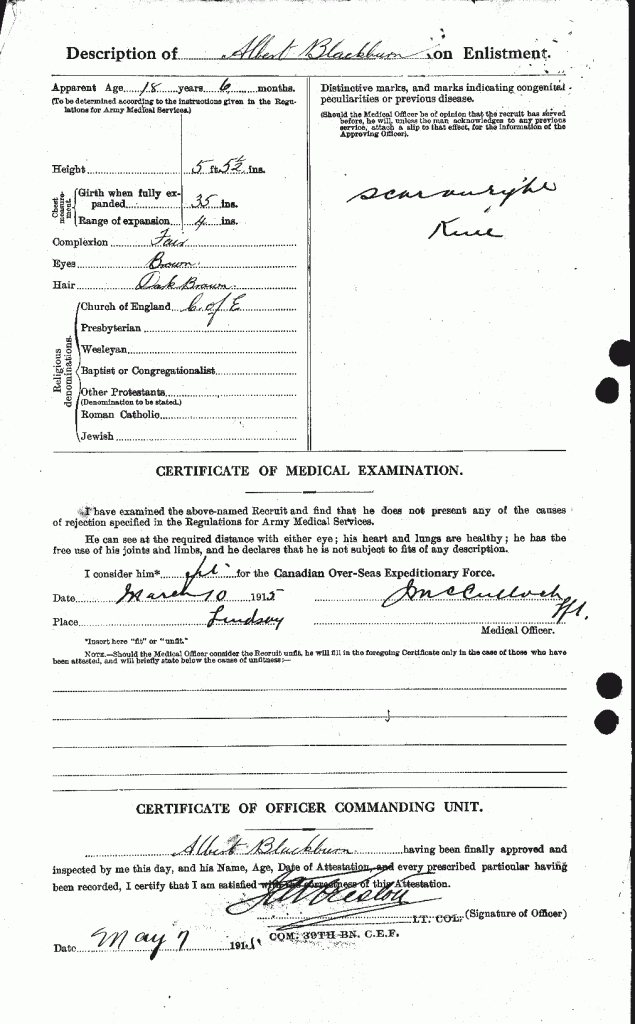 Description of Albert Blackburn on Enlistment.
Apparent Age 18 years 6 months.
(To be determined according to the instructions given in the Regu-
lations for Army Medical Services.)
Height 5 ft. 5½ ins.
Chest measurement.
Girth when fully ex-
panded 35 ins.
Range of expansion 4 ins.
Complexion Fair
Eyes Brown
Hair Dark Brown
Religious denominations.
Church of England C. of E
Presbyterian
Wesleyan
Baptist or Congregationalist
Other Protestants
(Denomination to be stated.)
Roman Catholic
Jewish
Distinctive marks, and marks indicating congenital
peculiarities or previous disease.
(Should the Medical Officer be of opinion that the recruit has served
before, he will, unless the man acknowledges to any previous
service, attach a slip to that effect, for the information of the
Approving Officer).
scar on right
Knee
CERTIFICATE OF MEDICAL EXAMINATION.
I have examined the above-named Recruit and find that he does not present any of the causes
of rejection specified in the Regulations for Army Medical Services.
He can see at the required distance with either eye; his heart and lungs are healthy; he has the
free use of his joints and limbs, and he declares that he is not subject to fits of any description.
I consider him* fit for the Canadian Over-Seas Expeditionary Force.
Date March 10 1915 J McCulloch
Place Lindsay
Medical Officer.
*Insert here "fit" or "unfit."
NOTE.—Should the Medical Officer consider the Recruit unfit, he will fill in the foregoing Certificate only in the case of those who have
been attested, and will briefly state below the cause of unfitness:—
CERTIFICATE OF OFFICER COMMANDING UNIT.
Albert Blackburn having been finally approved and
inspected by me this day, and his Name, Age, Date of Attestation, and every prescribed particular having
been recorded, I certify that I am satisfied with the correctness of this Attestation.
Preston
LT. COL. (Signature of Officer)
COM. 39TH BN. C.E.F.
Date May 7 191